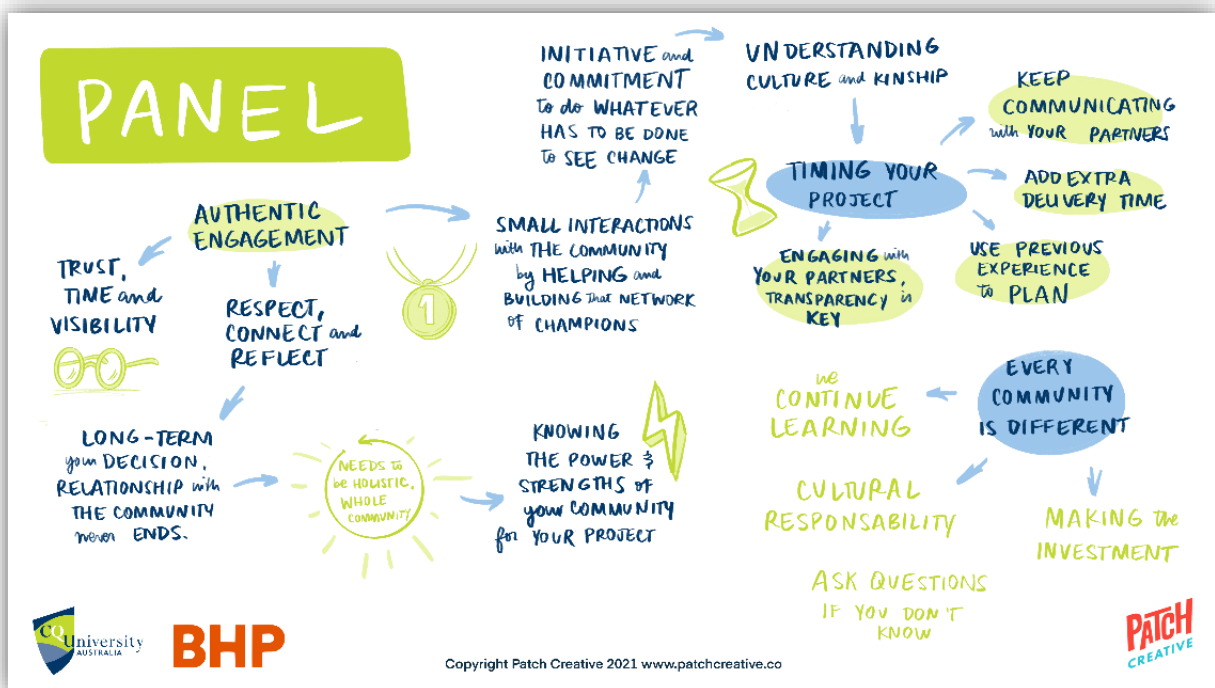 PANEL
AUTHENTIC
ENGAGEMENT
TRUST,
TIME and
VISIBILITY
RESPECT,
CONNECT and
REFLECT
LONG-TERM
your DECISION,
RELATIONSHIP with
THE COMMUNITY
never ENDS.
NEEDS to
be HOLISTIC,
WHOLE
COMMUNITY
KNOWING
THE POWER &
STRENGTHS of
your COMMUNITY
for YOUR PROJECT
SMALL INTERACTIONS
with THE COMMUNITY
by HELPING and
BUILDING that NETWORK
OF CHAMPIONS
1
INITIATIVE and
COMMITMENT
to do WHATEVER
HAS TO BE DONE
to SEE CHANGE
UNDERSTANDING
CULTURE and KINSHIP
TIMING YOUR
PROJECT
KEEP
COMMUNICATING
with YOUR PARTNERS
ADD EXTRA
DELIVERY TIME
USE PREVIOUS
EXPERIENCE
to PLAN
ENGAGING with
YOUR PARTNERS,
TRANSPARENCY is
KEY
EVERY
COMMUNITY
IS DIFFERENT
we
CONTINUE
LEARNING
CULTURAL
RESPONSABILITY
MAKING the
INVESTMENT
ASK QUESTIONS
IF YOU DON'T
KNOW
CQUniversity
AUSTRALIA
BHP
Copyright Patch Creative 2021 www.patchcreative.co
PATCH
CREATIVE